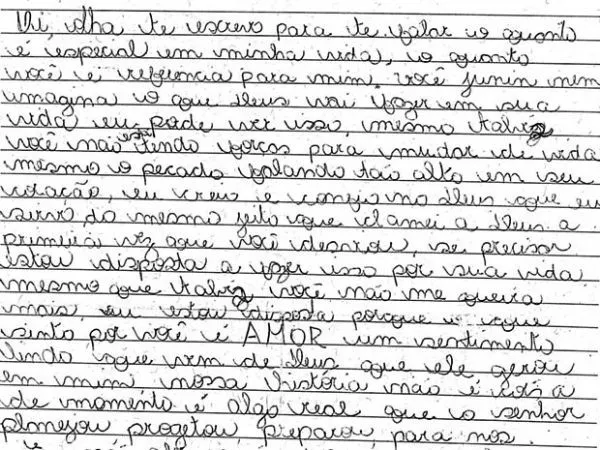 Oi, olha te escrevo para te falar o quanto
é especial em minha vida, o quanto
você é referencia para mim. você junin nem
imagina o que Deus vai fazer em sua
vida eu pude ver isso, mesmo talvez
você não está tendo forças para mudar de vida
mesmo o pecado falando tão alto em seu
coração, eu creio e confio no Deus que eu
sirvo, do mesmo jeito que clamei a Deus a
primeira vez que você desviou, se precisar
estou disposta a fazer isso por sua vida
mesmo que talvez você não me queira
mais, eu estou disposta porque o que
sinto por você é AMOR um sentimento
lindo que vem de Deus que ele gerou
em mim nossa história não é coisa
de momento é algo real que o senhor
planejou, progetou, preparou, para nós.